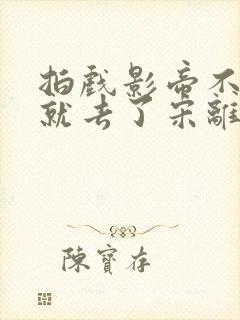 拍戲影帝不
就去了宋離
陳寶存